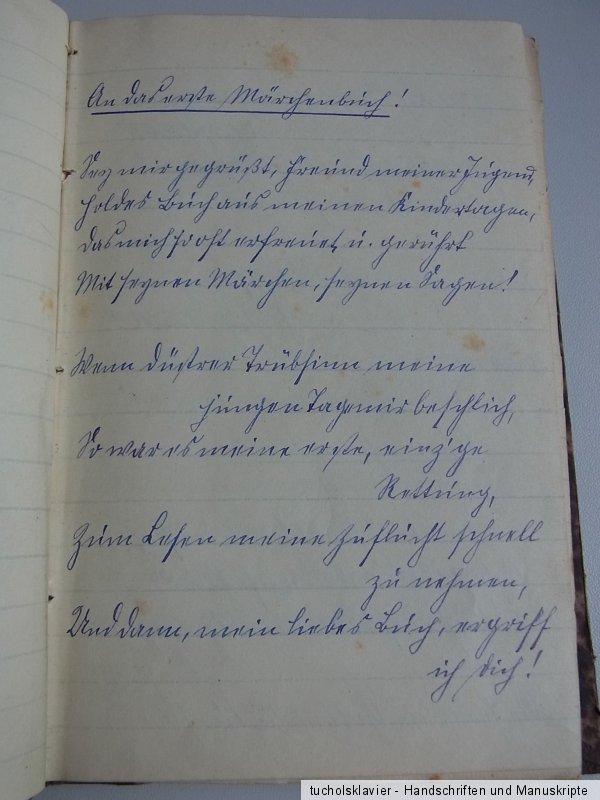 An das erste Märchenbuch!
Sey mir gegrüßt, Freund meiner Jugend,
Holdes Buch aus meinen Kindertagen,
Das mich so oft erfreuet u. gerührt
Mit seynen Märchen, seynen Sagen!
Wenn düstrer Trübsinn meine
jungen Tage mir beschlich,
So war es meine erste, einz'ge
Rettung,
Zum Lesen meine Zuflucht schnell
zu nehmen,
Und dann, mein liebes Buch, ergriff
ich dich!
tucholsklavier - Handschriften und Manuskripte